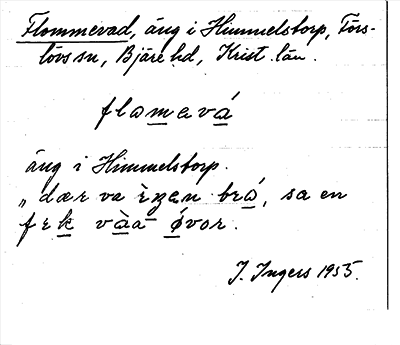 Flommevad, äng i Himmelstorp, Förs-
lövs sn, Bjäre hd, Krist. län.
flomevá
äng i Himmelstorp.
„dær va ìŋen brá, sa en
fek vàa øvor.
I. Ingers 1955.